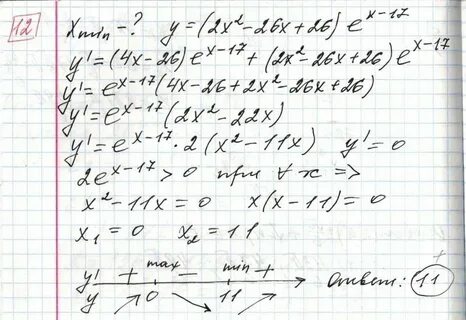 12 x min - ? y = (2x² - 26x + 26) e^(x-17)
y' = (4x - 26) e^(x-17) + (2x² - 26x + 26) e^(x-17)
y' = e^(x-17) (4x - 26 + 2x² - 26x + 26)
y' = e^(x-17) (2x² - 22x)
y' = e^(x-17) · 2 (x² - 11x) y' = 0
2e^(x-17) > 0 при ∀ x =>
x² - 11x = 0 x(x - 11) = 0
x₁ = 0 x₂ = 11
y' + max - min + Ответ: 11 +
y 0 11